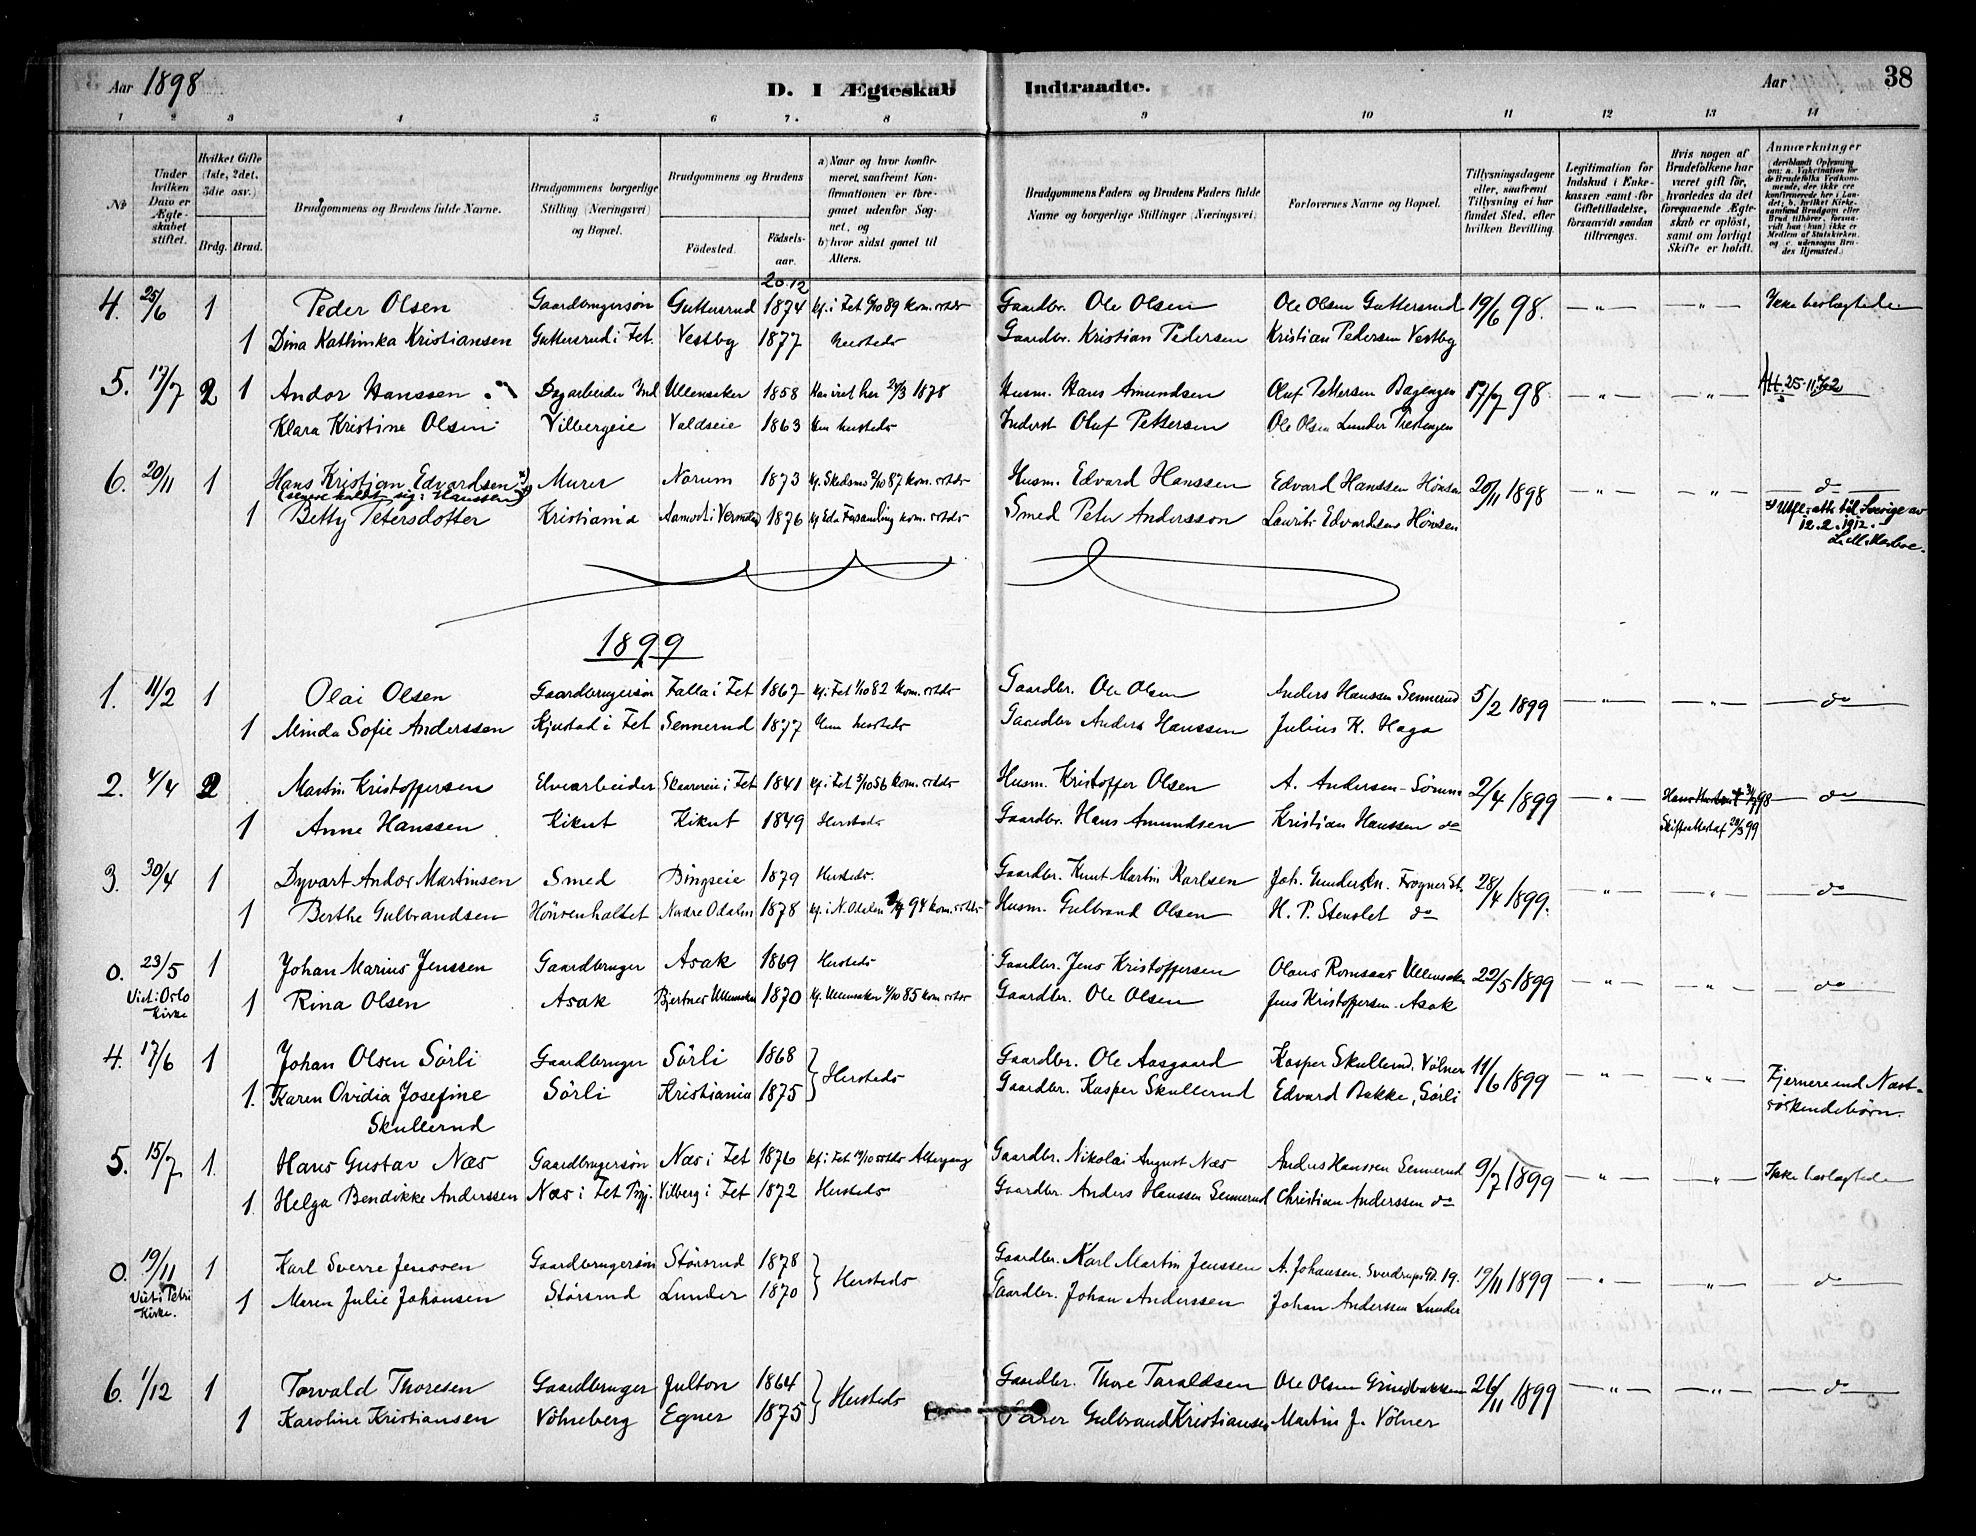 Aar 1898 D. I Ægteskab Indtraadte. Aar 38
1 2 3 4 5 6 7. 8 9 10 11 12 13 14
№
Under hvilken Dato er Ægteskabet stiftet.
Hvilket Gifte (1ste, 2det, 3die osv.)
Brdg. Brud.
Brudgommens og Brudens fulde Navne.
Brudgommens borgerlige Stilling (Næringsvei) og Bopæl.
Brudgommens og Brudens
Fødested. Fødselsaar.
a) Naar og hvor konfirmeret, saafremt Konfirmationen er foregaaet udenfor Sognet, og
b) hvor sidst gaaet til Alters.
Brudgommens Faders og Brudens Faders fulde Navne og borgerlige Stillinger (Næringsvei)
Forlovernes Navne og Bopæl.
Tillysningsdagene eller, saafremt Tillysning ei har fundet Sted, efter hvilken Bevilling.
Legitimation for Indskud i Enkekassen samt for Giftetilladelse, forsaavidt saadan tiltrænges.
Hvis nogen af Brudefolkene har været gift før, hvorledes da det foregaaende Ægteskab er opløst, samt om lovligt Skifte er holdt.
Anmærkninger
20.12
4. 25/6 1 Peder Olsen Gaardbrugersøn Guttersrud 1874 kf. i Fet 89 kom. Gaardbr. Ole Olsen Ole Olsen Guttersrud 19/6 98. — „ — — „ — Ikke beslægtede
1 Dina Kathinka Kristiansen Guttersrud i Fet. Vestby 1877 hersteds Gaardbr. Kristian Pedersen Kristian Pedersen Vestby
5. 17/7 2 1 Andor Hanssen Dagarbeider Ind Ullensaker 1858 1878 Husm. Hans Amundsen Oluf Pettersen 17/7 98 — „ — — „ — Att. 25-11-62
Klara Kristine Olsen Vilbergeie Valdseie 1863 hersteds Inderst Oluf Pettersen Ole Olsen Lunder
6. 20/11 1 Hans Kristian Edvardsen x) Murer Norum 1873 kf. Skedsmo 87 kom. Husm. Edvard Hanssen Edvard Hanssen Hønsen 20/11 1898 — „ — — „ — do
(senere kaldt sig: Hanssen)
1 Betty Petersdotter Kristiania 1876 kf. Eda Forsamling kom. Smed Peter Andersson Laurits Edvardsen Hønsen x) Utfl. att. til Sverige av
12.2.1912.
1899
1. 11/2 1 Olai Olsen Gaardbrugersøn Falla i Fet 1867 kf. i Fet 82 kom. Gaardbr. Ole Olsen Anders Hanssen Sennerud 5/2 1899 — „ — — „ — do
1 Minda Sofie Anderssen Kjustad i Fet Sennerud 1877 Hun hersteds Gaardbr Anders Hanssen Julius K. Haga
2. 4/4 2 Martin Kristoffersen Elvearbeider i Fet 1841 kf. i Fet 56 kom. Husm. Kristoffer Olsen A. Andersen 2/4 1899 — „ — 98 — do —
1 Anne Hanssen Kikut Kikut 1849 Hersteds Gaardbr. Hans Amundsen Kristian Hanssen do 99
3. 30/4 1 Dyvart Andor Martinsen Smed Bingseie 1879 Hersteds. Gaardbr. Knut Martin Karlsen Joh. Gundersen. Frogner St. 28/4 1899. — „ — — „ — do
1 Berthe Gulbrandsen Hönsenhaltet Nordre Odalen 1878 kf. i N. Odalen 94 kom. Husm. Gulbrand Olsen H. P. Stenslet do
0. 23/5 1 Johan Marius Jenssen Gaardbruger Asak 1869 Hersteds Gaardbr. Jens Kristoffersen Olaus Romsaas Ullensaker 22/5 1899 — „ — — „ — do
Viet i Oslo Kirke 1 Rina Olsen Asak Bjertnes Ullensaker 1870 kf. Ullensaker 85 kom. Gaardbr. Ole Olsen Jens Kristoffersen Asak
4. 17/6 1 Johan Olsen Sörli Gaardbruger Sörli 1868 Hersteds Gaardbr. Ole Aasgaard Kasper Skullerud, Völner 11/6 1899 — „ — — „ — Fjernere end Næst-
1. Karen Ovidia Josefine Sörli Kristiania 1875 Gaardbr. Kasper Skullerud Edvard Bakke, Sörli söskendebörn.
Skullerud
5. 15/7 1. Hans Gustav Næs Gaardbrugersøn Næs i Fet 1876 kf. i Fet Altergang Gaardbr. Nikolai August Næs Anders Hanssen Sennerud 9/7 1899 — „ — — „ — Ikke beslægtede
1. Helga Bendikke Anderssen Næs i Fet Vilberg i Fet 1872 Hersteds Gaardbr. Anders Hanssen Sennerud Christian Anderssen do
0. 19/11 1 Karl Sverre Jenssen Gaardbrugersøn Störsrud 1878 Hersteds Gaardbr. Karl Martin Jenssen A. Johansen, Sverdrups Gd. 19. 19/11 1899 — „ — — „ — do
Viet i Petri Kirke. 1 Maren Julie Johansen Störsrud Lunder 1870 Gaardbr. Johan Anderssen Johan Anderssen Lunder
6. 1/12 1 Torvald Thoresen Gaardbruger Julton 1864 Hersteds Gaardbr. Thore Taraldsen Ole Olsen Grindbakken 26/11 1899 — „ — — „ — do
1 Karoline Kristiansen Vöhreberg Egner 1875 Gulbrand Kristiansen Martin J. Völner